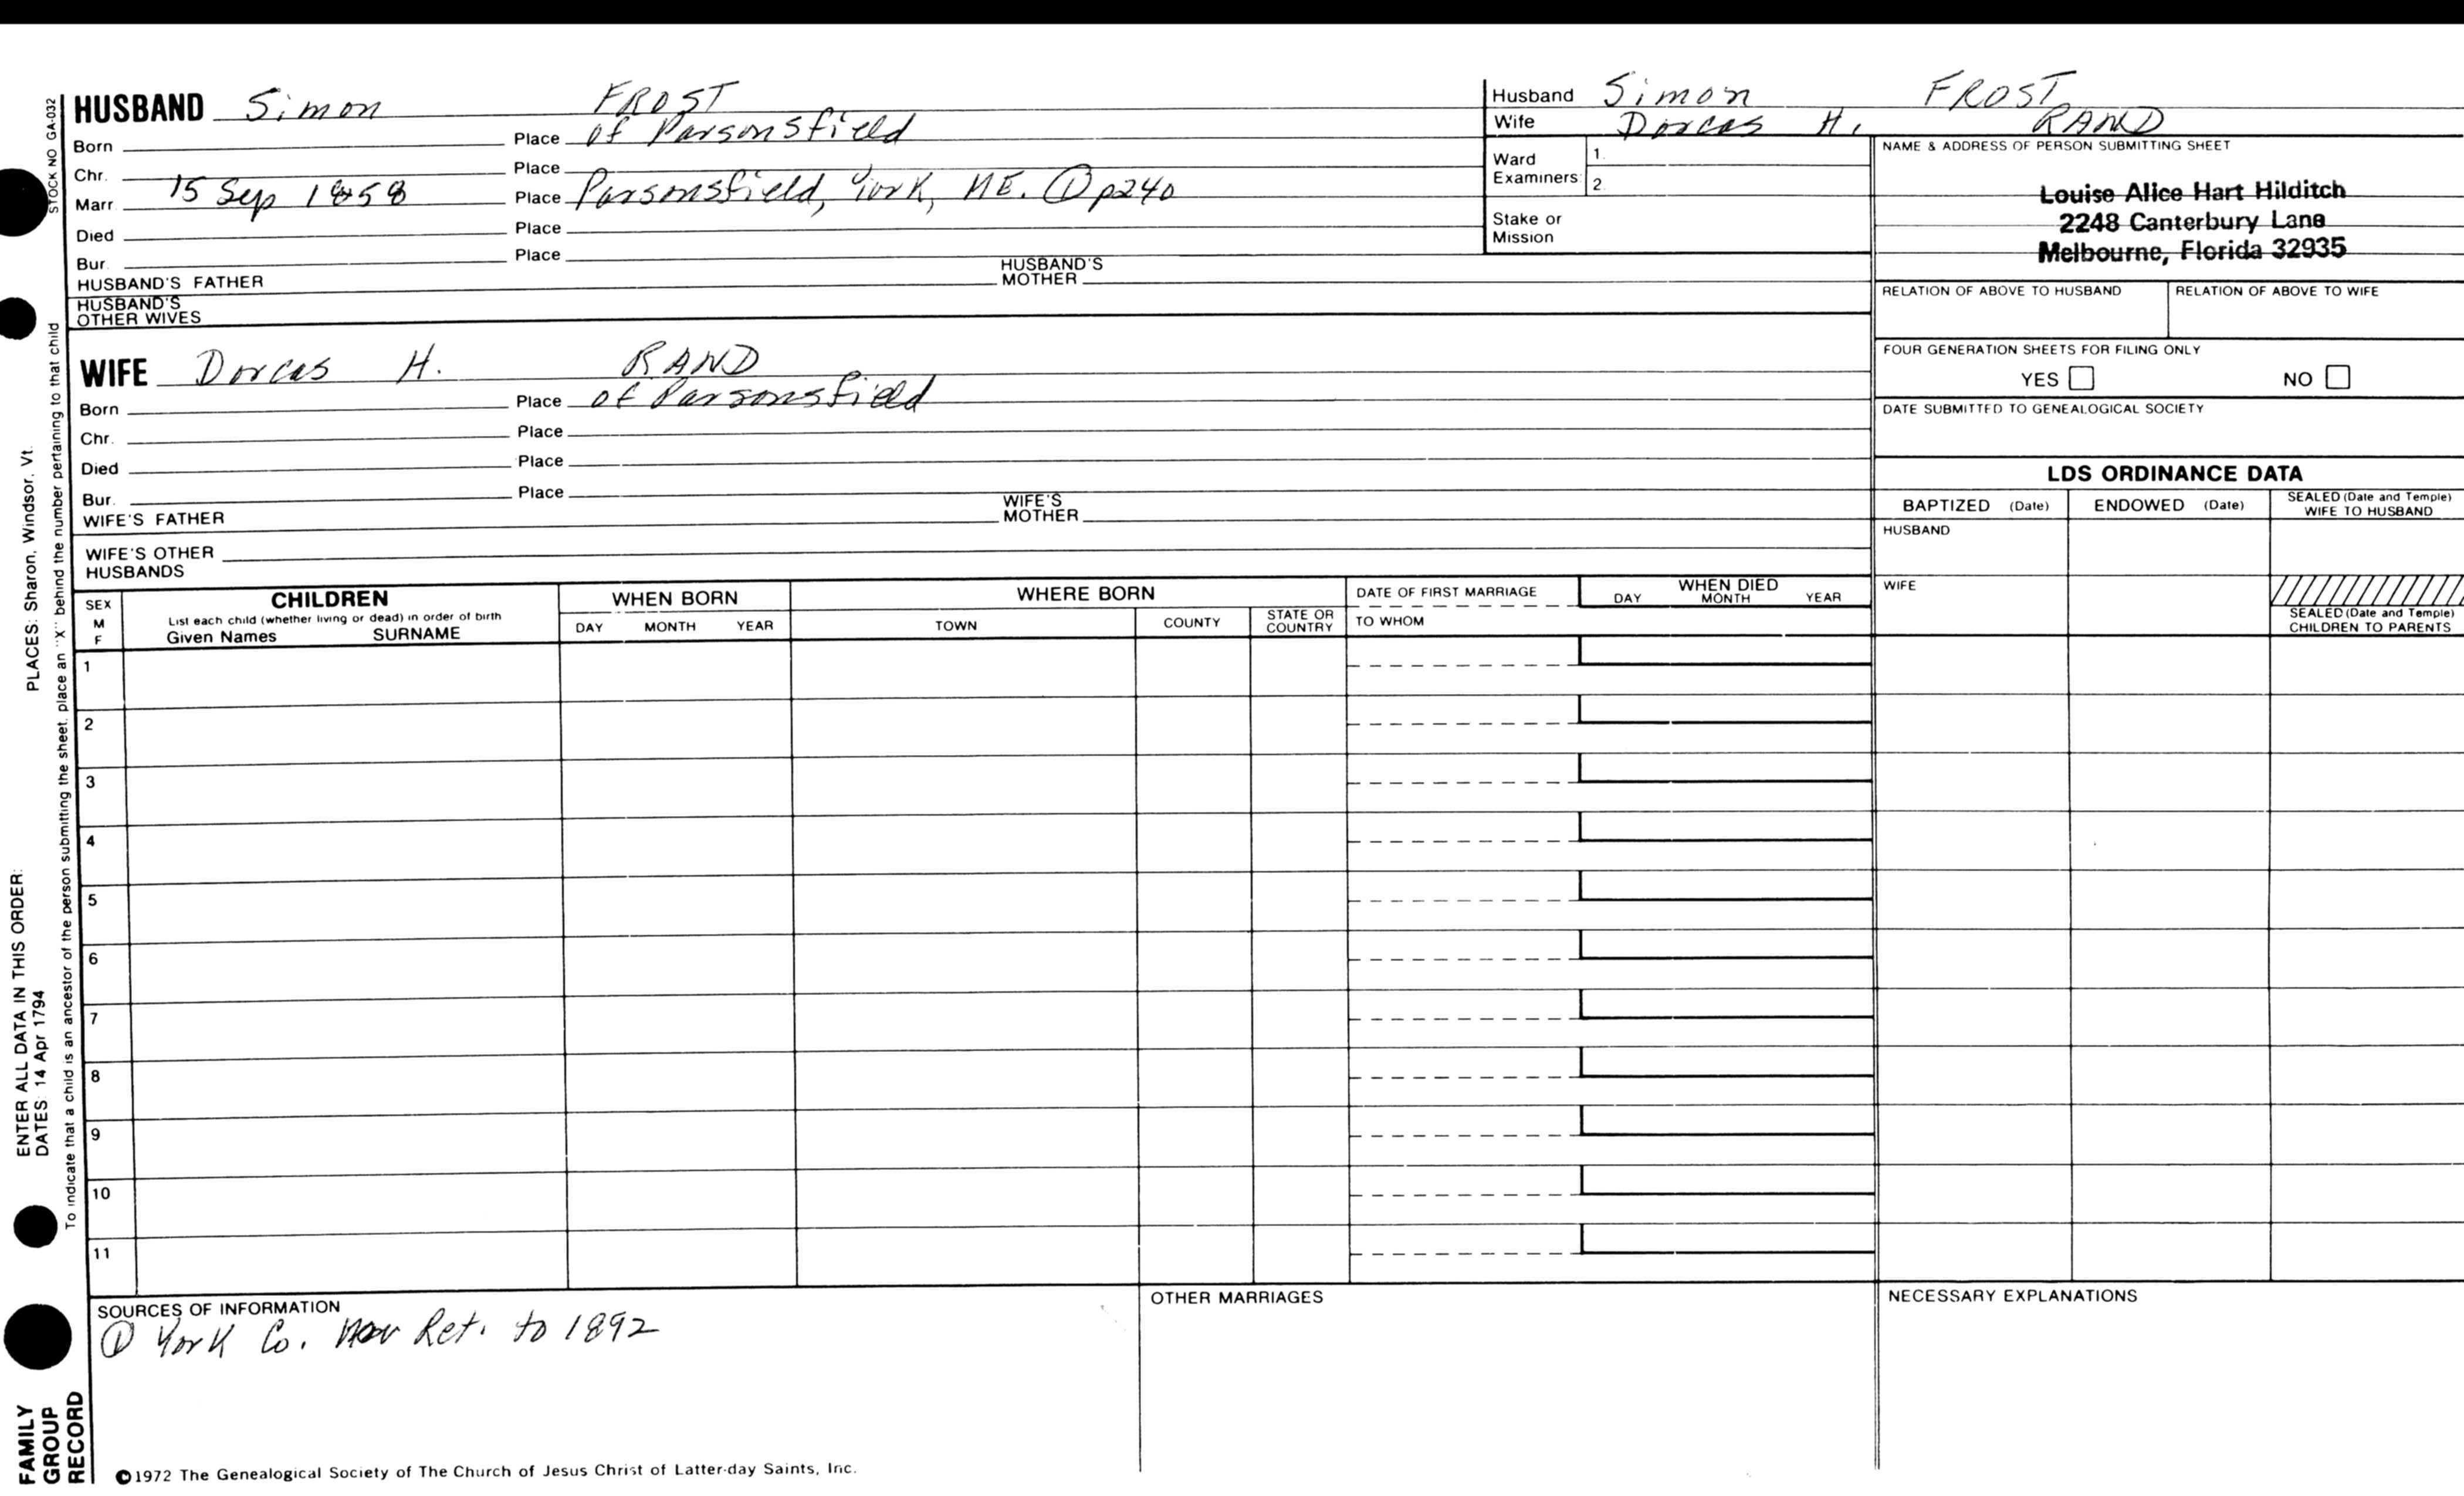 HUSBAND Simon FROST
Born Place of Parsonsfield
Chr. Place
Marr 15 Sep 1858 Place Parsonsfield, York, ME. ① p240
Died Place
Bur. Place
HUSBAND'S FATHER HUSBAND'S MOTHER
HUSBAND'S OTHER WIVES
Husband Simon FROST
Wife Dorcas H. RAND
Ward Examiners 1.
2.
Stake or Mission
NAME & ADDRESS OF PERSON SUBMITTING SHEET
Louise Alice Hart Hilditch
2248 Canterbury Lane
Melbourne, Florida 32935
RELATION OF ABOVE TO HUSBAND RELATION OF ABOVE TO WIFE
FOUR GENERATION SHEETS FOR FILING ONLY
YES NO
DATE SUBMITTED TO GENEALOGICAL SOCIETY
WIFE Dorcas H. RAND
Born Place of Parsonsfield
Chr. Place
Died Place
Bur. Place
WIFE'S FATHER WIFE'S MOTHER
WIFE'S OTHER HUSBANDS
LDS ORDINANCE DATA
BAPTIZED (Date) ENDOWED (Date) SEALED (Date and Temple) WIFE TO HUSBAND
HUSBAND
WIFE
SEALED (Date and Temple) CHILDREN TO PARENTS
SEX M F
CHILDREN
List each child (whether living or dead) in order of birth
Given Names SURNAME
WHEN BORN
DAY MONTH YEAR
WHERE BORN
TOWN COUNTY STATE OR COUNTRY
DATE OF FIRST MARRIAGE
TO WHOM
WHEN DIED
DAY MONTH YEAR
1
2
3
4
5
6
7
8
9
10
11
SOURCES OF INFORMATION
① York Co. Ret. to 1892
OTHER MARRIAGES
NECESSARY EXPLANATIONS
©1972 The Genealogical Society of The Church of Jesus Christ of Latter-day Saints, Inc.
STOCK NO GA-032
To indicate that a child is an ancestor of the person submitting the sheet, place an "X" behind the number pertaining to that child
ENTER ALL DATA IN THIS ORDER:
DATES: 14 Apr 1794
PLACES: Sharon, Windsor, Vt.
FAMILY
GROUP
RECORD